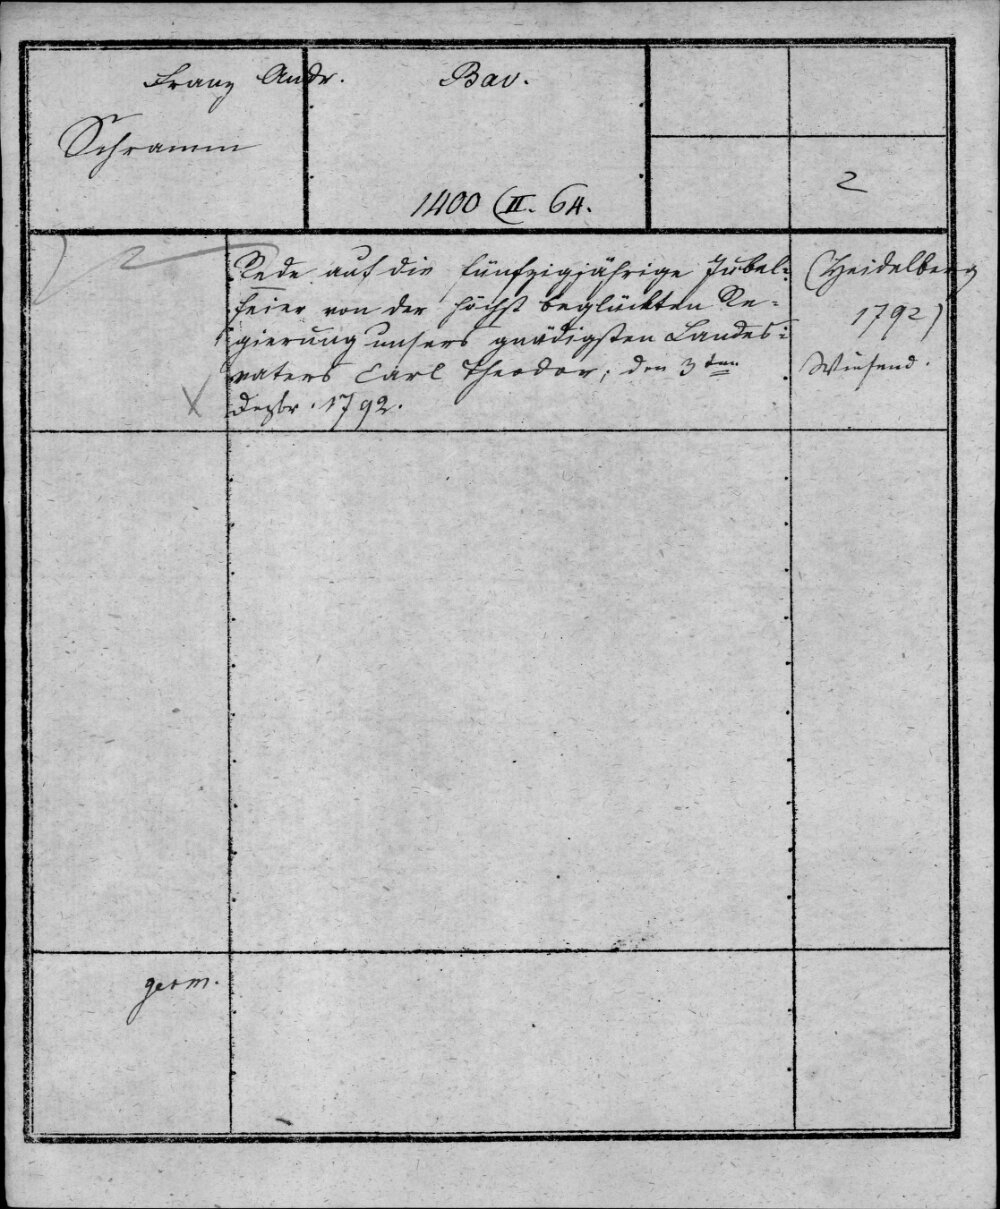 Franz Andr.
Schramm
Bav.
1400 (II. 64.
2
2
Rede auf die fünfzigjährige Jubel-
feier von der höchst beglückten Re-
gierung unsers gnädigsten Landes-
vaters Carl Theodor; den 3ten
Dezbr. 1792.
X
(Heidelberg
1792)
Wiesend.
germ.